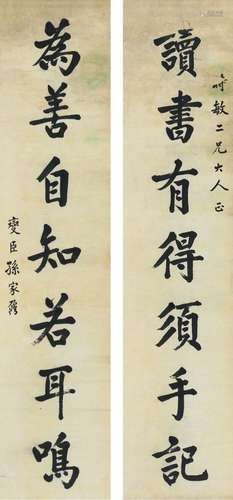 讀書有得須手記
敏二兄大人正
為善自知若耳鳴
燮臣孫家鼐